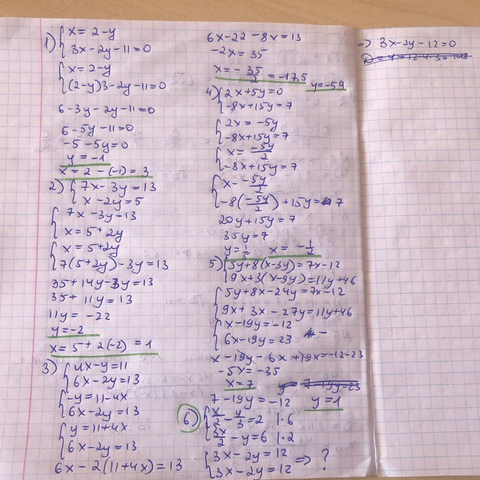 1) { x = 2-y
3x - 2y - 11 = 0
{ x = 2-y
(2-y)3 - 2y - 11 = 0
6 - 3y - 2y - 11 = 0
6 - 5y - 11 = 0
-5 - 5y = 0
y = -1
x = 2 - (-1) = 3
2) { 7x - 3y = 13
x - 2y = 5
{ 7x - 3y = 13
x = 5 + 2y
{ x = 5 + 2y
7(5+2y) - 3y = 13
35 + 14y - 3y = 13
35 + 11y = 13
11y = -22
y = -2
x = 5 + 2(-2) = 1
3) { 4x - y = 11
6x - 2y = 13
{ -y = 11 - 4x
6x - 2y = 13
{ y = 11 + 4x
6x - 2y = 13
6x - 2(11+4x) = 13
6x - 22 - 8x = 13
-2x = 35
x = - 35/2 = -17,5
y = -59
4) { 2x + 5y = 0
-8x + 15y = 7
{ 2x = -5y
-8x + 15y = 7
{ x = -5y/2
-8x + 15y = 7
{ x - -5y/2
-8(-5y/2) + 15y = 7
20y + 15y = 7
35y = 7
y = 1/5 x = -1/2
5) { 5y + 8(x-3y) = 7x - 12
9x + 3(x-9y) = 11y + 46
{ 5y + 8x - 24y = 7x - 12
9x + 3x - 27y = 11y + 46
{ x - 19y = -12
6x - 19y = 23
x - 19y - 6x + 19x = -12 - 23
-5x = -35
x = 7
7 - 19y = -12 y = 1
6) { x/2 - y/3 = 2 | · 6
3x/2 - y = 6 | · 2
{ 3x - 2y = 12
3x - 2y = 12 => ?
=> 3x - 2y - 12 = 0